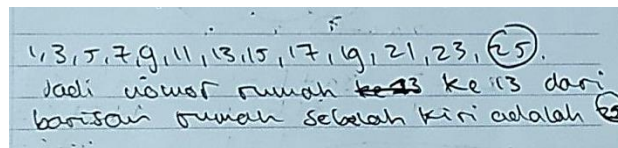 1,3,5,7,9,11,13,15,17,19,21,23,25.
Jadi nomor rumah ke 13 ke 13 dari
barisan rumah sebelah kiri adalah 25